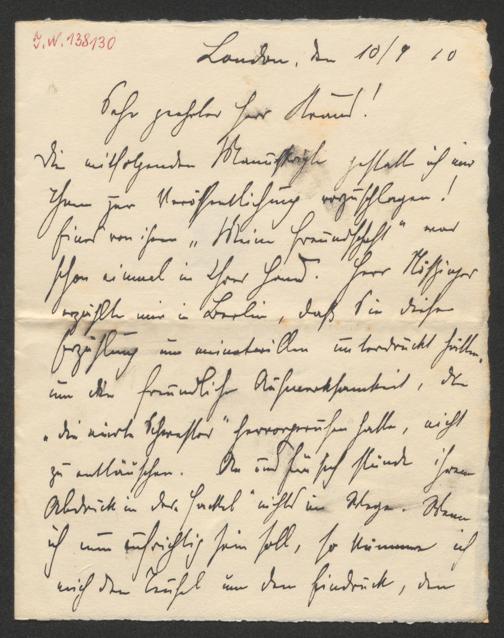 I.N. 138130
London, den 10/9 10
Sehr geehrter Herr Kraus!
Die mitfolgenden Manuskripte gestatte ich mir
Ihnen zur Veröffentlichung vorzuschlagen!
Eines von ihnen „Meine Freundschaft" war
schon einmal in Ihrer Hand. Herr
erzählte mir in Berlin, daß Sie diese
Erzählung um meinetwillen unterdrückt hätten,
um die freundliche Aufmerksamkeit, die
„die vierte Schwester" hervorgerufen hatte, nicht
zu enttäuschen. An und für sich stünde ihrem
Abdruck in der „Fackel" nichts im Wege. Wenn
ich nun aufrichtig sein soll, so kümmere ich
mich den Teufel um den Eindruck, den